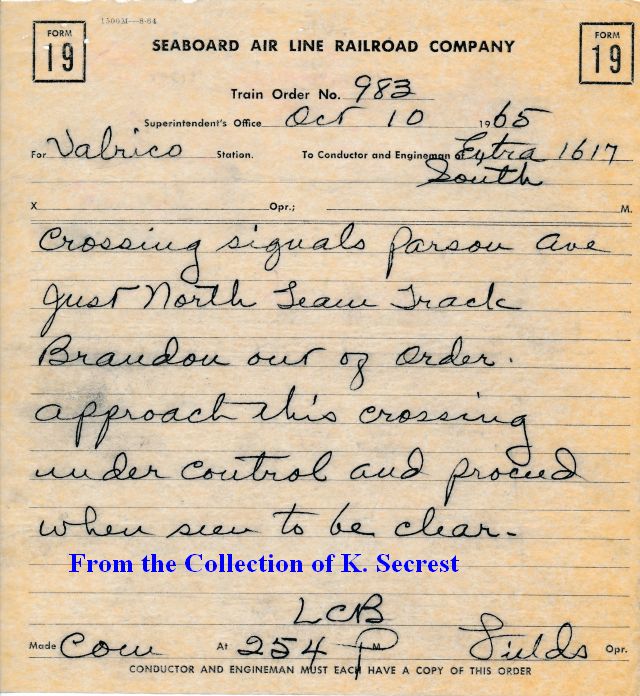 1500M—8-64
FORM 19
SEABOARD AIR LINE RAILROAD COMPANY
FORM 19
Train Order No. 983
Superintendent's Office Oct 10 1965
For Valrico Station. To Conductor and Engineman of Extra 1617
South
X Opr.; M.
Crossing signals Parson Ave
Just North Team Track
Brandon out of order.
approach this crossing
under control and proceed
when seen to be clear.
From the Collection of K. Secrest
LCB
Made Com At 254 P M. Fields Opr.
CONDUCTOR AND ENGINEMAN MUST EACH HAVE A COPY OF THIS ORDER